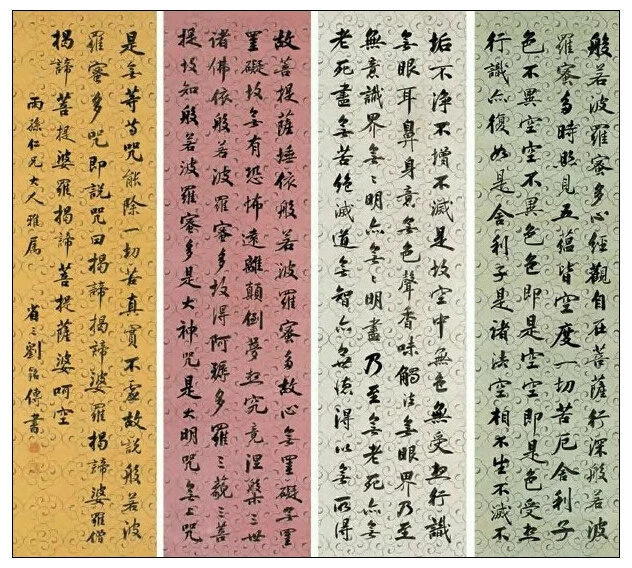 般若波羅蜜多心經觀自在菩薩行深般若波
羅蜜多時照見五蘊皆空度一切苦厄舍利子
色不異空空不異色色即是空空即是色受想
行識亦復如是舍利子是諸法空相不生不滅不
垢不淨不增不滅是故空中無色無受想行識
無眼耳鼻身意無色聲香味觸法無眼界乃至
無意識界無〻明亦無〻明盡乃至無老死亦無
老死盡無苦絕滅道無智亦無德得以無所得
故菩提薩埵依般若波羅蜜多故心無罣礙無罣
罣礙故無有恐怖遠離顛倒夢想究竟涅槃三世
諸佛依般若波羅蜜多故得阿耨多羅三藐三菩
提故知般若波羅蜜多是大神咒是大明咒無上咒
是無等等咒能除一切苦真實不虛故說般若波
羅蜜多咒即說咒曰揭諦揭諦婆羅揭諦婆羅僧
揭諦菩提婆羅揭諦菩提薩婆呵空
雨孫仁兄大人雅屬 省三劉銘傳書